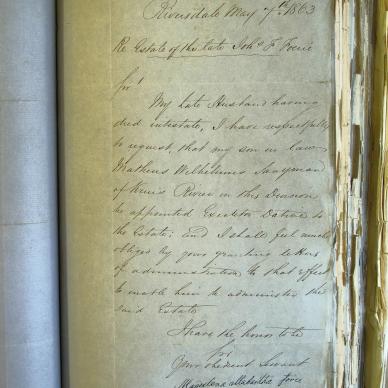 Riversdale May 7th 1863
Re Estate of the late Johs F Fourie
Sir!
My late Husband having
died intestate, I have respectfully
to request, that my son in law
Mathens Wilhelmus Snayman
of River in this Division
be appointed Executor Dative to
the Estate; and I shall feel much
obliged by your granting letters
of administration to that effect
to enable him to administer the
said Estate
I have the honor to be
Sir
Your obedient Servant